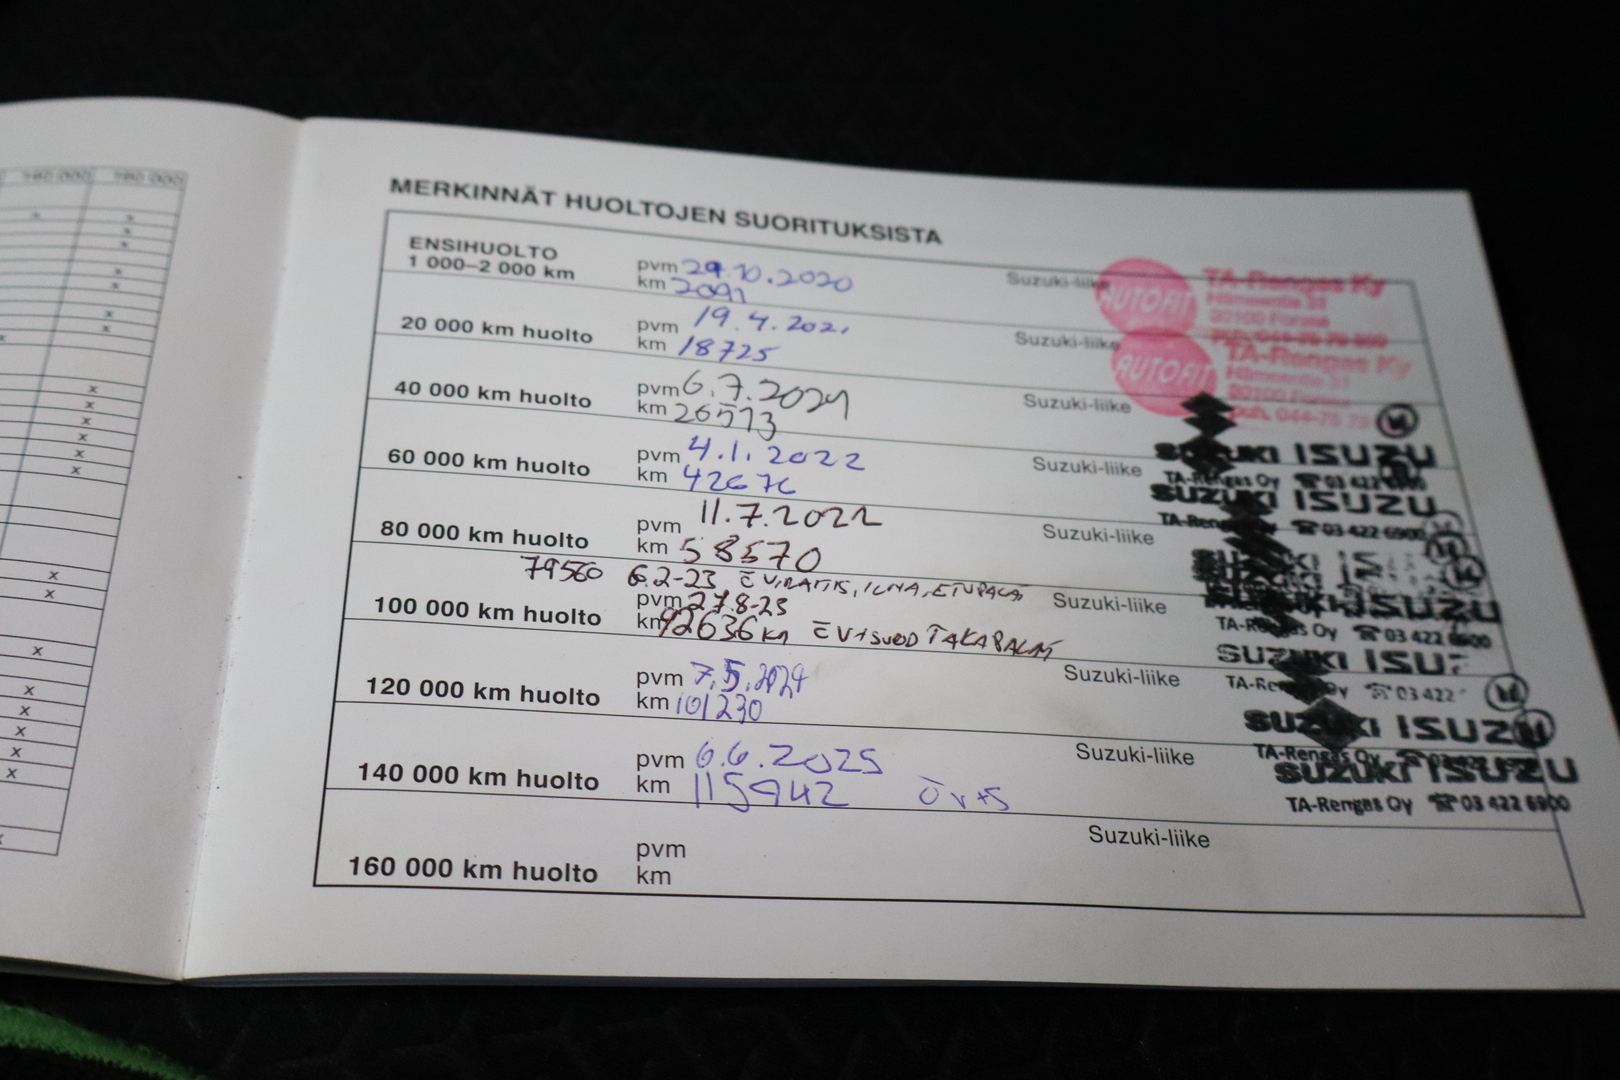 160 000 180 000
MERKINNÄT HUOLTOJEN SUORITUKSISTA
ENSIHUOLTO
1 000–2 000 km
pvm 29.10.2020
km 2091
Suzuki-liike
AUTOFIT
TA-Rengas Ky
Hämeentie 31
30100 Forssa
20 000 km huolto
pvm 19.4.2021
km 18725
Suzuki-liike
AUTOFIT
TA-Rengas Ky
Hämeentie 31
30100 Forssa
puh. 044-75 79
40 000 km huolto
pvm 6.7.2021
km 26573
Suzuki-liike
SUZUKI ISUZU
TA-Rengas Oy ☎ 03 422 6900
60 000 km huolto
pvm 4.1.2022
km 42676
Suzuki-liike
SUZUKI ISUZU
TA-Rengas Oy ☎ 03 422 6900
80 000 km huolto
pvm 11.7.2022
km 58570
Suzuki-liike
79560 6.2-23
100 000 km huolto
pvm 27.8-23
km 92636 km TAKAPALAT
Suzuki-liike
SUZUKI ISUZU
TA-Rengas Oy ☎ 03 422 6900
120 000 km huolto
pvm 7.5.2024
km 101230
Suzuki-liike
SUZUKI ISUZU
TA-Rengas Oy ☎ 03 422
140 000 km huolto
pvm 6.6.2025
km 115942
Suzuki-liike
SUZUKI ISUZU
TA-Rengas Oy
SUZUKI ISUZU
TA-Rengas Oy ☎ 03 422 6900
160 000 km huolto
pvm
km
Suzuki-liike